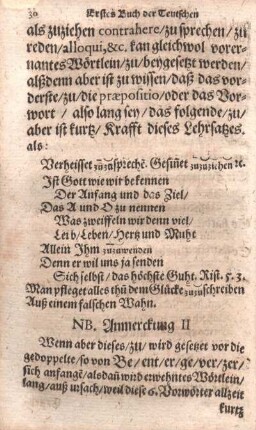 36 Erstes Buch der Teutschen
als zuziehen contrahere/zu sprechen / zu
reden/alloqui,&c. kan gleichwol vorer-
nantes Wörtlein/zu/beygesetzt werden/
alßdenn aber ist zu wissen/daß das vor-
derste/zu/die præpositio/oder das Vor-
wort / also lang sey / das folgende/zu/
aber ist kurtz/ Krafft dieses Lehrsatzes.
als:
Verheisset zuzuspreche. Gesiñet zuzuziehen ꝛc.
Ist Gott wie wir bekennen
Der Anfang und das Ziel/
Das A und O zu nennen
Was zweiffeln wir denn viel/
Leib/Leben/Hertz und Muht
Allein Ihm zuzuwenden
Denn er wil uns ja senden
Sich selbst/ das höchste Guht. Rist. 5. 3.
Man pfleget alles thũ dem Glücke zuzuschreiben
Auß einem falschen Wahn.
NB. Anmerckung II
Wenn aber dieses/zu/ wird gesetzt vor die
gedoppelte/so von Be/ent/er/ge/ver/zer/
sich anfangẽ/alsdañ wird erwehntes Wörtlein/
lang/auß ursach/weil diese 6. Vorwörter allzeit
kurtz